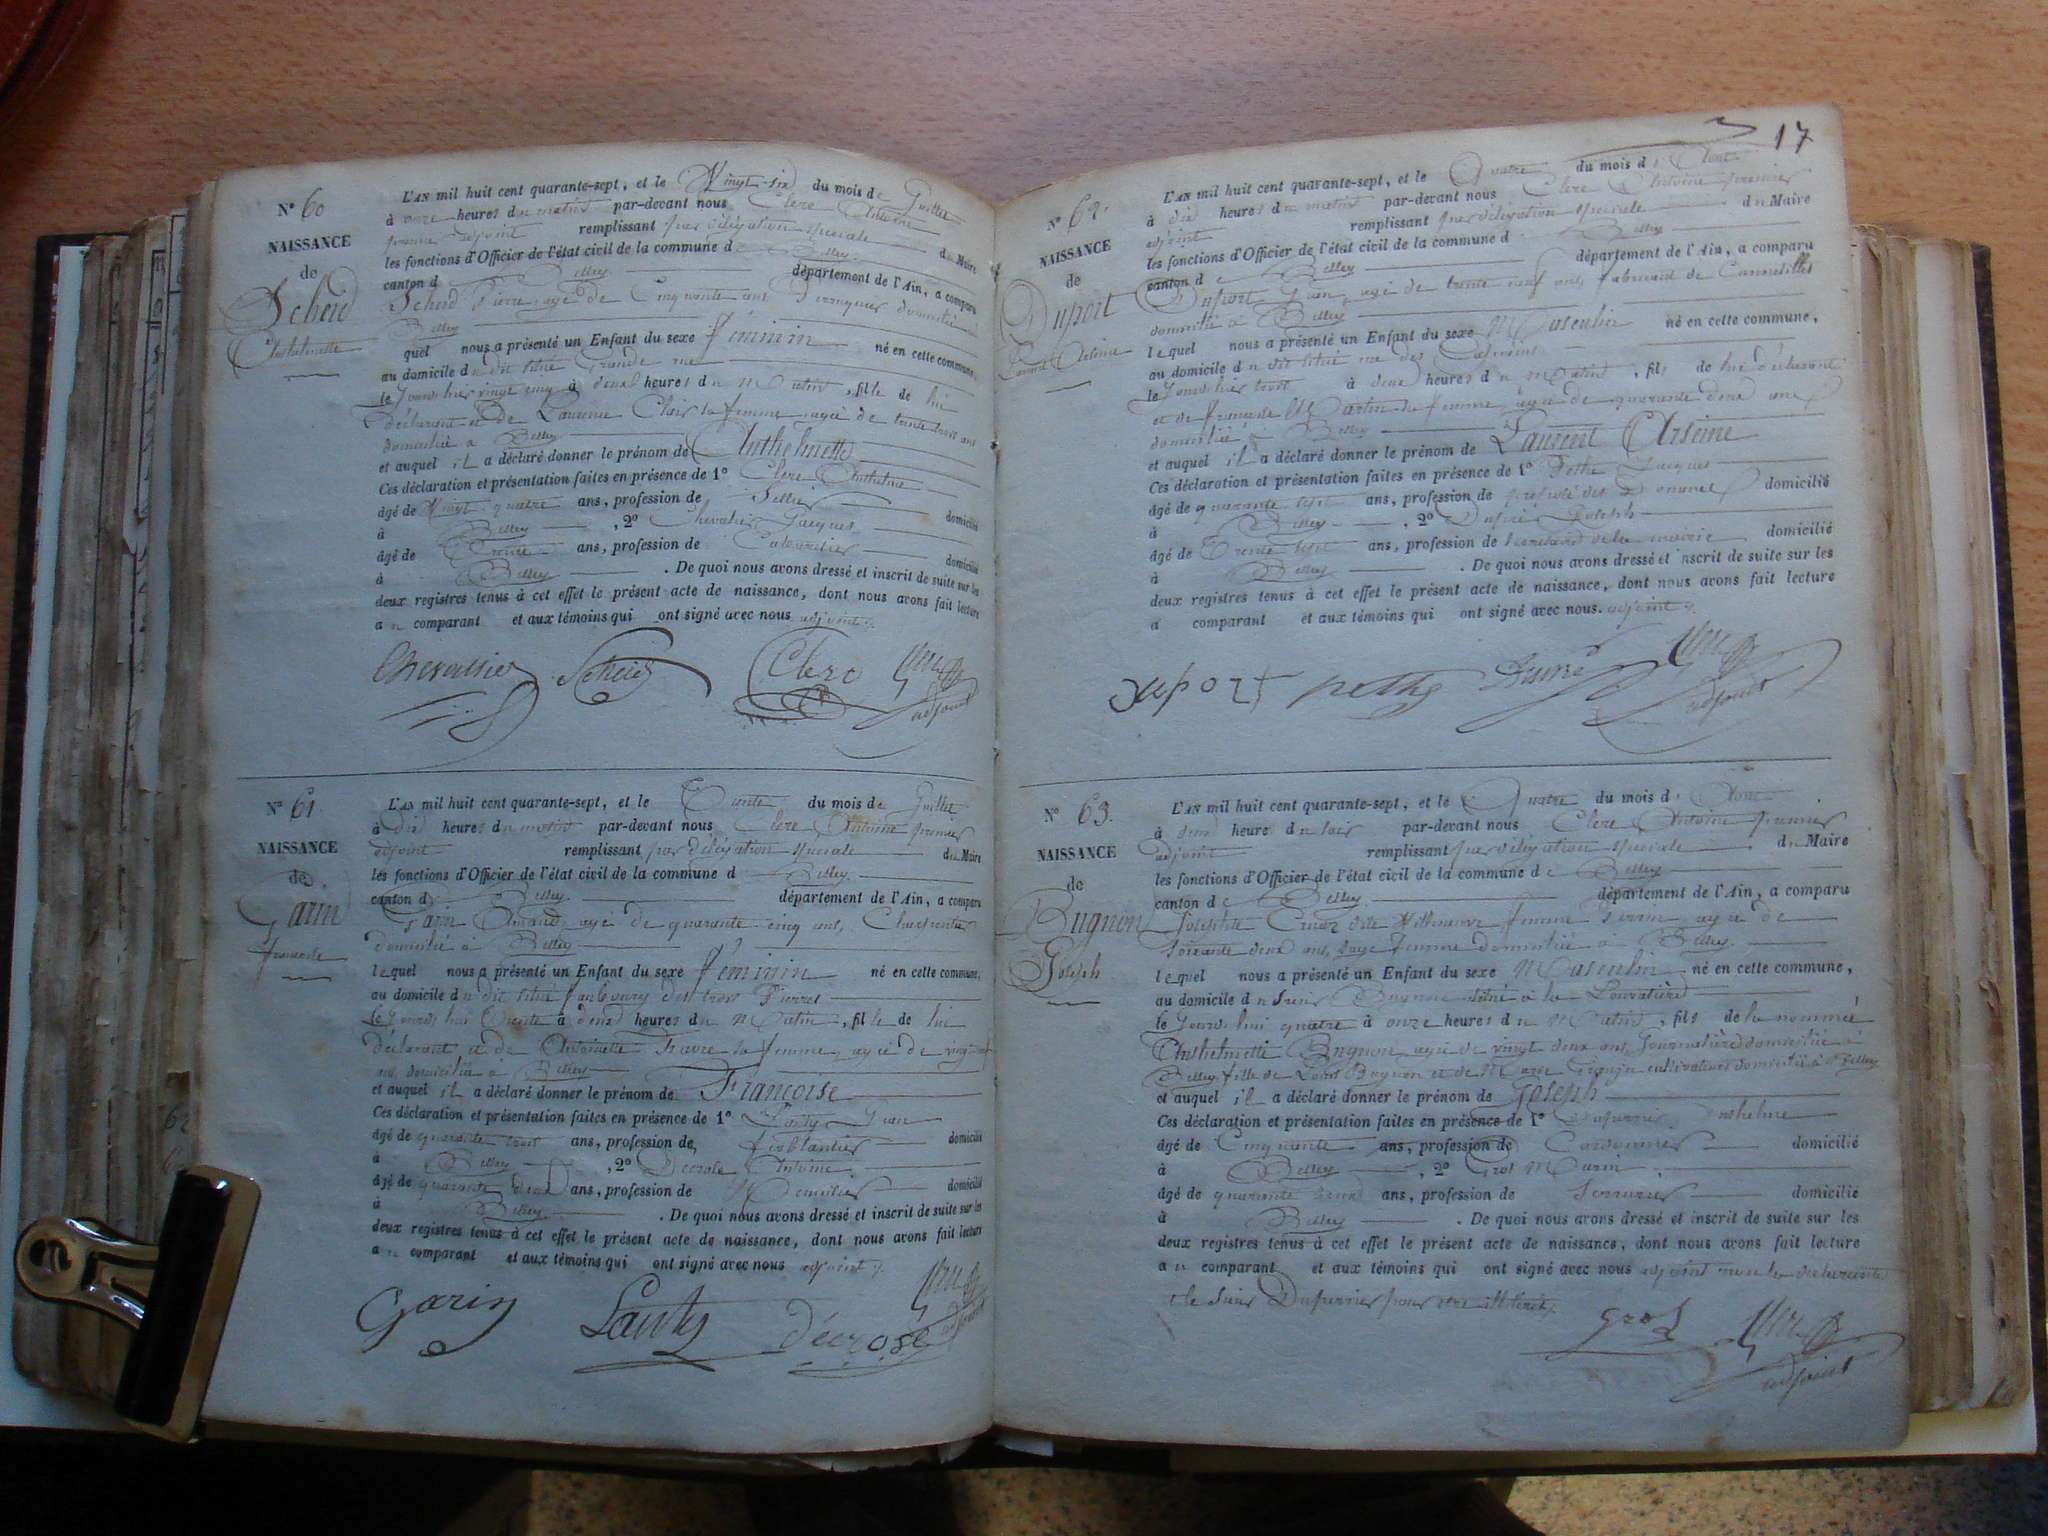 N° 60
NAISSANCE
de
Scheid
Anthelmette
L'AN mil huit cent quarante-sept, et le Vingt-six du mois de Juillet
à onze heures du matin par-devant nous Clerc Antoine
premier adjoint remplissant par délégation speciale du Maire
les fonctions d'Officier de l'état civil de la commune de Belley
canton de Belley département de l'Ain, a comparu
Scheid Pierre, agé de Cinquante ans Perruquier domicilié à
Belley
quel nous a présenté un Enfant du sexe féminin né en cette commune,
au domicile du dit situé Grande rue
le Jourd'hier vingt cinq à deux heures du Matin, fille de lui
déclarant et de Laurence Clair sa femme, agée de trente trois ans
domiciliée à Belley
et auquel il a déclaré donner le prénom de Anthelmette
Ces déclaration et présentation faites en présence de 1° Clerc Anthelme
âgé de Vingt quatre ans, profession de Sellier domicilié
à Belley, 2° Chevalier Jacques
âgé de Trente ans, profession de Cabaretier domicilié
à Belley. De quoi nous avons dressé et inscrit de suite sur les
deux registres tenus à cet effet le présent acte de naissance, dont nous avons fait lecture
au comparant et aux témoins qui ont signé avec nous adjoint
Chevallier Scheid Clerc adjoint
N° 61
NAISSANCE
de
Garin
francoise
L'AN mil huit cent quarante-sept, et le Trente du mois de Juillet
à dix heures du matin par-devant nous Clerc Antoine premier
adjoint remplissant par délégation speciale du Maire
les fonctions d'Officier de l'état civil de la commune de Belley
canton de Belley département de l'Ain, a comparu
Garin agé de quarante cinq ans, Charpentier
domicilié à Belley
lequel nous a présenté un Enfant du sexe féminin né en cette commune,
au domicile du dit situé faubourg des trois Pierres
le Jourd'hui Trente à deux heures du Matin, fille de lui
déclarant et de Antoinette Favre sa femme, agée de vingt
ans, domiciliée à Belley
et auquel il a déclaré donner le prénom de Francoise
Ces déclaration et présentation faites en présence de 1° Lanty Jean
âgé de quarante trois ans, profession de ferblantier domicilié
à Belley, 2° Décrose Antoine
âgé de quarante deux ans, profession de domicilié
à Belley. De quoi nous avons dressé et inscrit de suite sur les
deux registres tenus à cet effet le présent acte de naissance, dont nous avons fait lecture
au comparant et aux témoins qui ont signé avec nous adjoint
Garin Lanty Décrose adjoint
17
N° 62.
NAISSANCE
de
Duport
Laurent Arseine
L'AN mil huit cent quarante-sept, et le Quatre du mois d'Aout
à dix heures du matin par-devant nous Clerc Antoine premier
adjoint remplissant par délégation speciale du Maire
les fonctions d'Officier de l'état civil de la commune d Belley
canton de Belley département de l'Ain, a comparu
Duport Jean, agé de trente neuf ans, fabricant de
domicilié à Belley
lequel nous a présenté un Enfant du sexe Masculin né en cette commune,
au domicile du dit situé rue des Capucins
le Jourd'hier trois à deux heures du Matin, fils de lui déclarant
et de françoise Martin sa femme, agée de quarante deux ans
domiciliée à Belley
et auquel il a déclaré donner le prénom de Laurent Arseine
Ces déclaration et présentation faites en présence de 1° Pethe Jacques
âgé de quarante sept ans, profession de préposé des Douanes domicilié
à Belley, 2° Dupré Joseph
âgé de Trente sept ans, profession de secrétaire de la mairie domicilié
à Belley. De quoi nous avons dressé et inscrit de suite sur les
deux registres tenus à cet effet le présent acte de naissance, dont nous avons fait lecture
a comparant et aux témoins qui ont signé avec nous. adjoint
duport pethe Dupré adjoint
N° 63.
NAISSANCE
de
Bugnon
Joseph
L'AN mil huit cent quarante-sept, et le Quatre du mois d'Aout
à deux heures du soir par-devant nous Clerc Antoine premier
adjoint remplissant par délégation speciale du Maire
les fonctions d'Officier de l'état civil de la commune de Belley
canton de Belley département de l'Ain, a comparu
Josephte dite Villeneuve femme agée de
soixante deux ans, sage femme domiciliée à Belley
lequel nous a présenté un Enfant du sexe Masculin né en cette commune,
au domicile du sieur Bugnon situé à la Louvatière
le Jourd'hui quatre à onze heures du Matin, fils de la nommée
Anthelmette Bugnon, agée de vingt deux ans, Journalière domiciliée à
Belley, fille de Louis Bugnon et de Marie cultivateurs domiciliés à Belley
et auquel il a déclaré donner le prénom de Joseph
Ces déclaration et présentation faites en présence de 1° Duperrier Anthelme
âgé de Cinquante ans, profession de Cordonnier domicilié
à Belley, 2° Gros Marin
âgé de quarante deux ans, profession de Serrurier domicilié
à Belley. De quoi nous avons dressé et inscrit de suite sur les
deux registres tenus à cet effet le présent acte de naissance, dont nous avons fait lecture
au comparant et aux témoins qui ont signé avec nous adjoint non la déclarante
et le sieur Duperrier pour être illitérés
Gros adjoint